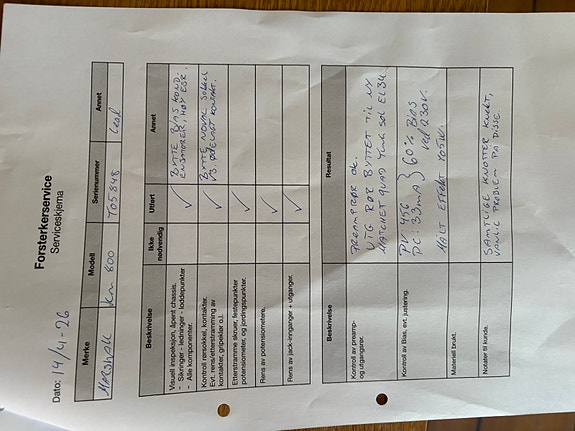 Forsterkerservice
Serviceskjema
Dato: 14/4-26
Merke Modell Serienummer Annet
MARSHALL Km 800 T05848
Beskrivelse Ikke nødvendig Utført Annet
Visuell inspeksjon, åpent chassis.
- Sikringer - ledninger - loddepunkter
- Alle komponenter.
✓
BYTTE BIAS KOND.
HØY ESR.
Kontroll rørsokkel, kontakter.
Evt. rens/etterstramming av
kontakter, gripekler o.l.
✓
BYTTE NOVAL SOKKEL
V3 ØDELAGT KONTAKT.
Etterstramme skruer, festepunkter
potensiometer, og jordingspunkter.
✓
Rens av potensiometere.
✓
Rens av jack-innganger + utganger.
✓
Beskrivelse Resultat
Kontroll av preamp-
og utgangsrør.
PREAMPRØR OK.
UTG RØR BYTTET TIL NY
MATCHET QUAD EL34.
Kontroll av Bias, evt. justering.
PV: 456
PC: 33mA } 60% BIAS
ved 230V.
MÅLT EFFEKT 105W.
Materiell brukt.
Notater til kunde.
SAMTLIGE KNOTTER KNEKT,
VANLIG PROBLEM PÅ DISSE.